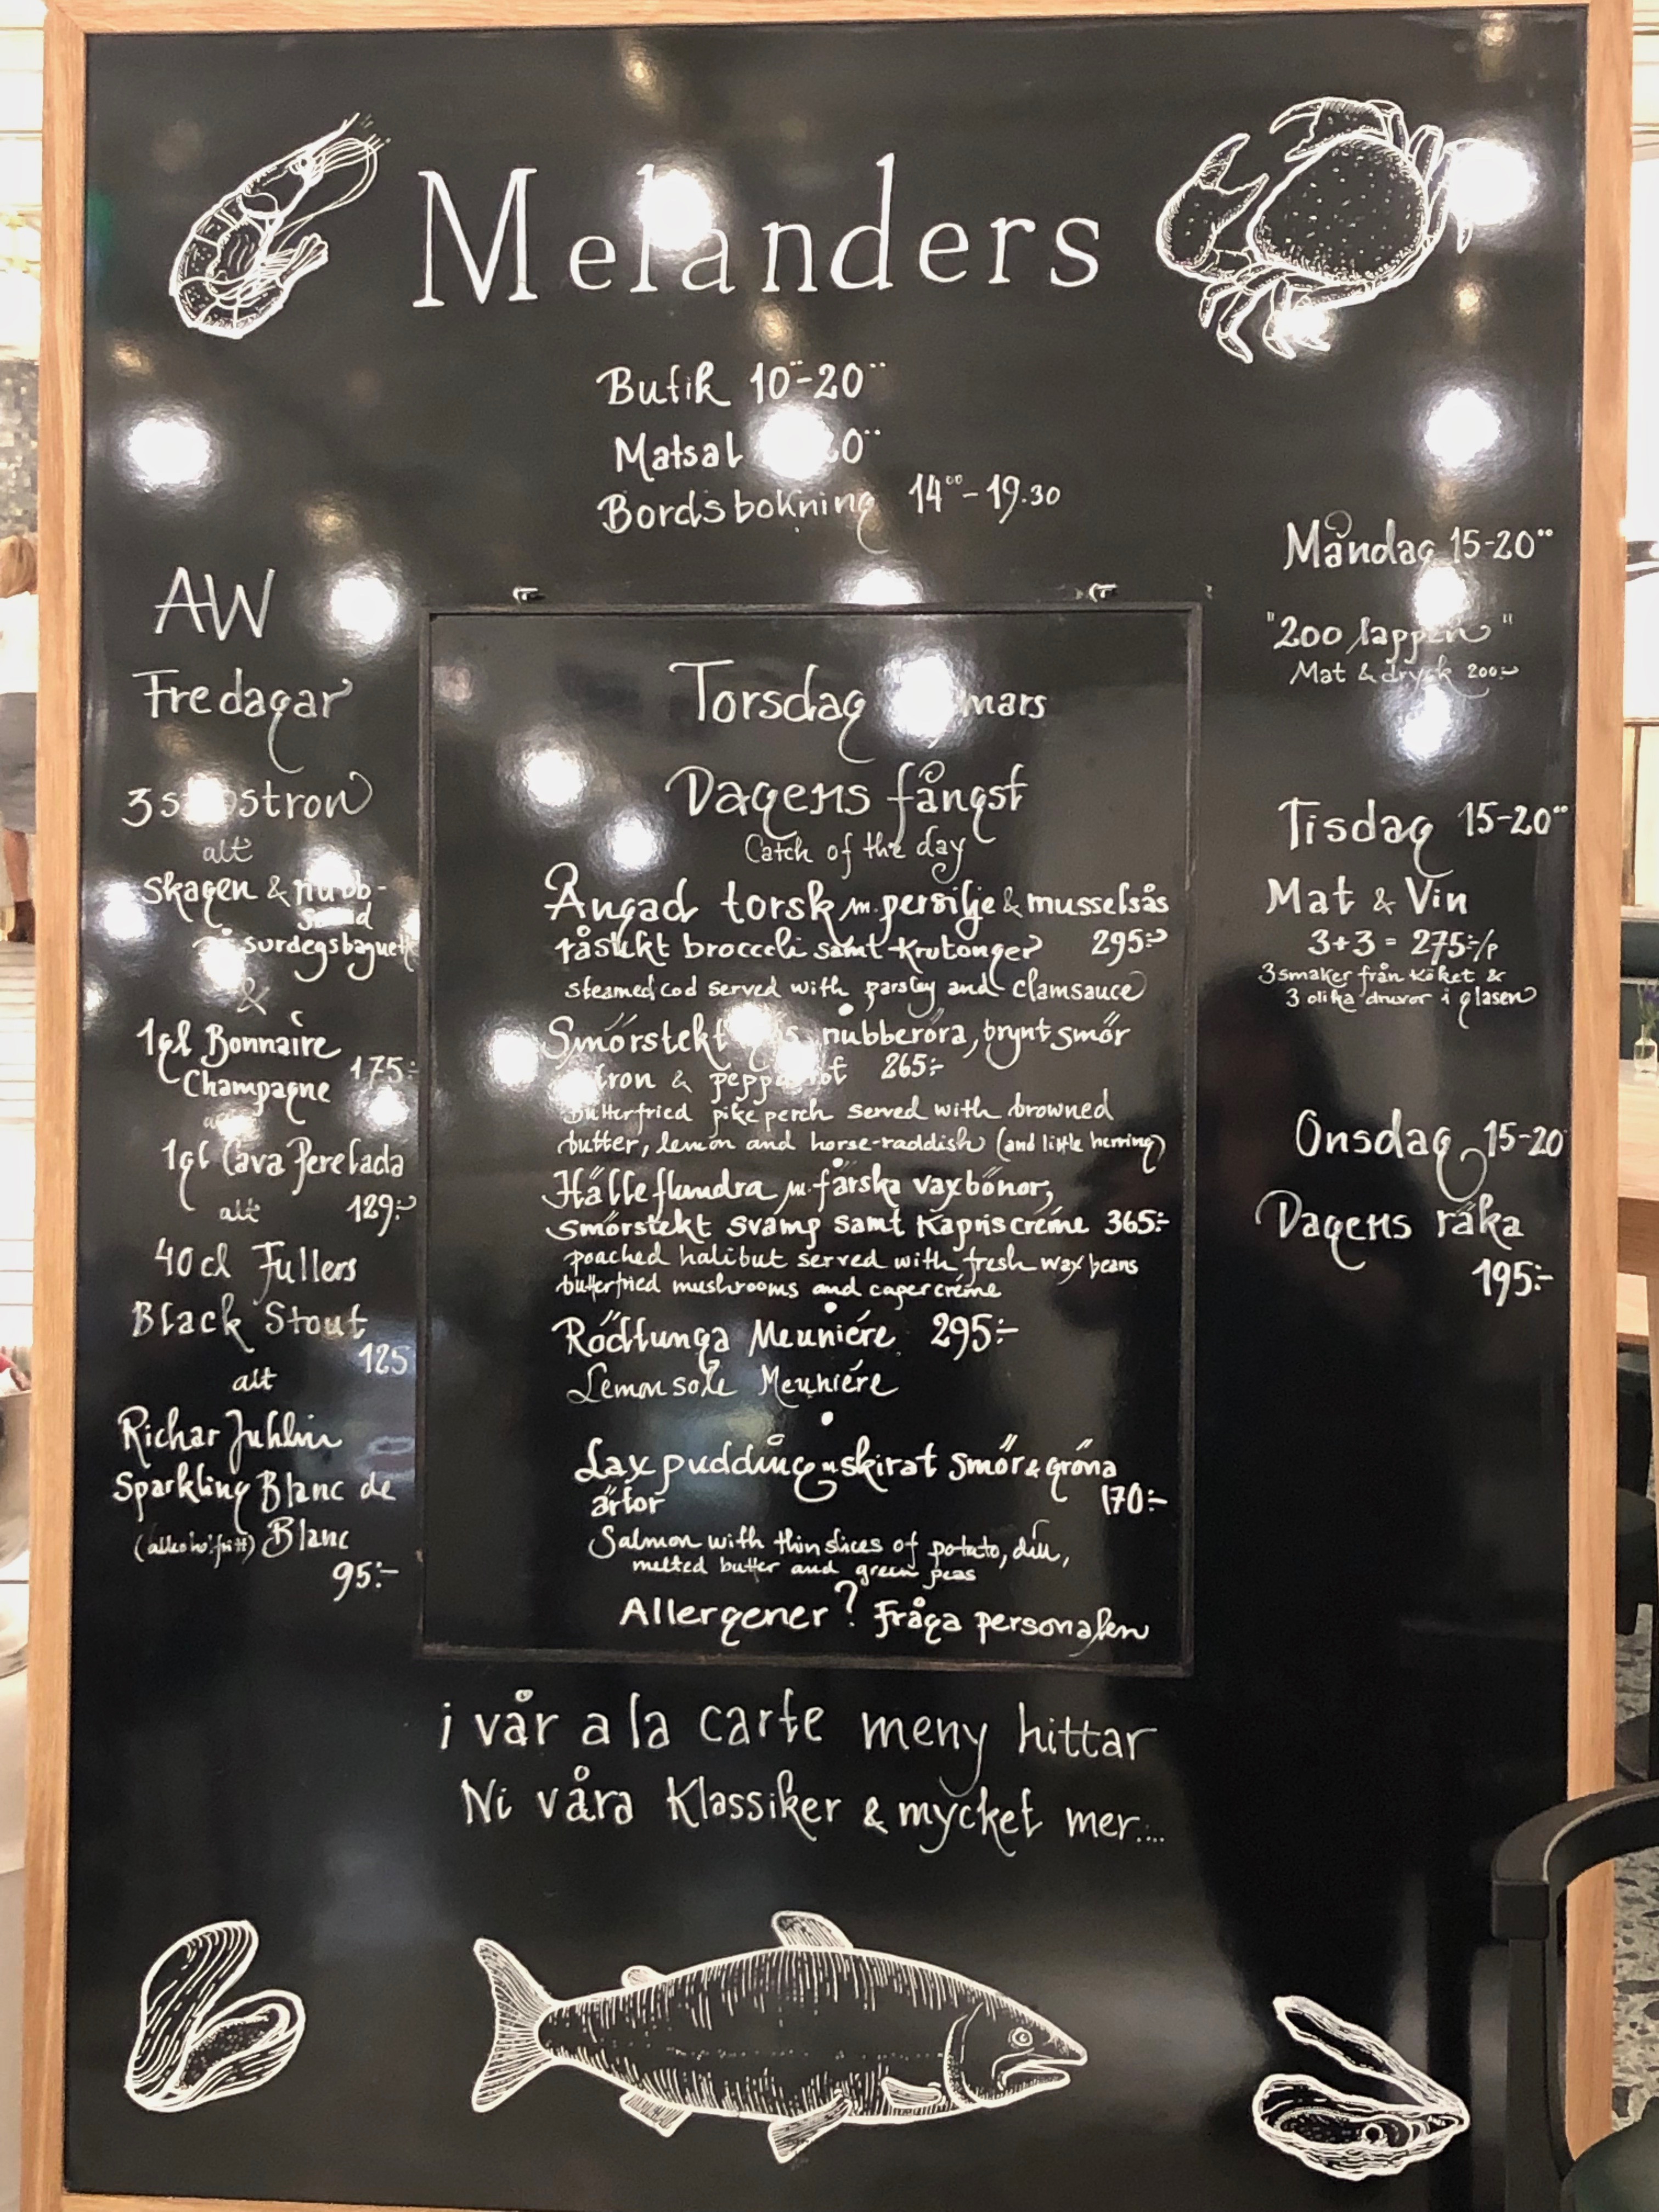 Melanders
Butik 10¨-20¨
Matsal
Bordsbokning 14⁰⁰-19.30
AW
Fredagar
alt
Skagen &
surdegsbaguett
&
1gl Bonnaire
Champagne 175:-
1gl Cava Perelada
alt 129:-
40 cl Fullers
Black Stout
125
alt
Richar Juhlin
Sparkling Blanc de
(alkoholfritt) Blanc
95:-
Torsdag mars
Dagens fångst
Catch of the day
Ångad torsk m. persilje & musselsås
råstekt broccoli samt krutonger 295:-
steamed cod served with parsley and clamsauce
Smörstekt nubberöra, brynt smör
& 265:-
butterfried pikeperch served with browned
butter, lemon and horse-raddish (and little herring)
Hälleflundra m. färska vaxbönor,
smörstekt svamp samt Kapriscréme 365:-
poached halibut served with fresh wax beans
butterfried mushrooms and caper créme
Rödtunga Meuniére 295:-
Lemon sole Meuniére
Laxpudding m skirat smör & gröna
ärtor 170:-
Salmon with thin slices of potato, dill,
melted butter and green peas
Allergener? Fråga personalen
Måndag 15-20¨
"200 lappen"
Mat & dryck 200:-
Tisdag 15-20¨
Mat & Vin
3+3 = 275:-/p
3 smaker från köket &
3 olika druvor i glasen
Onsdag 15-20
Dagens räka
195:-
i vår a la carte meny hittar
Ni våra Klassiker & mycket mer....